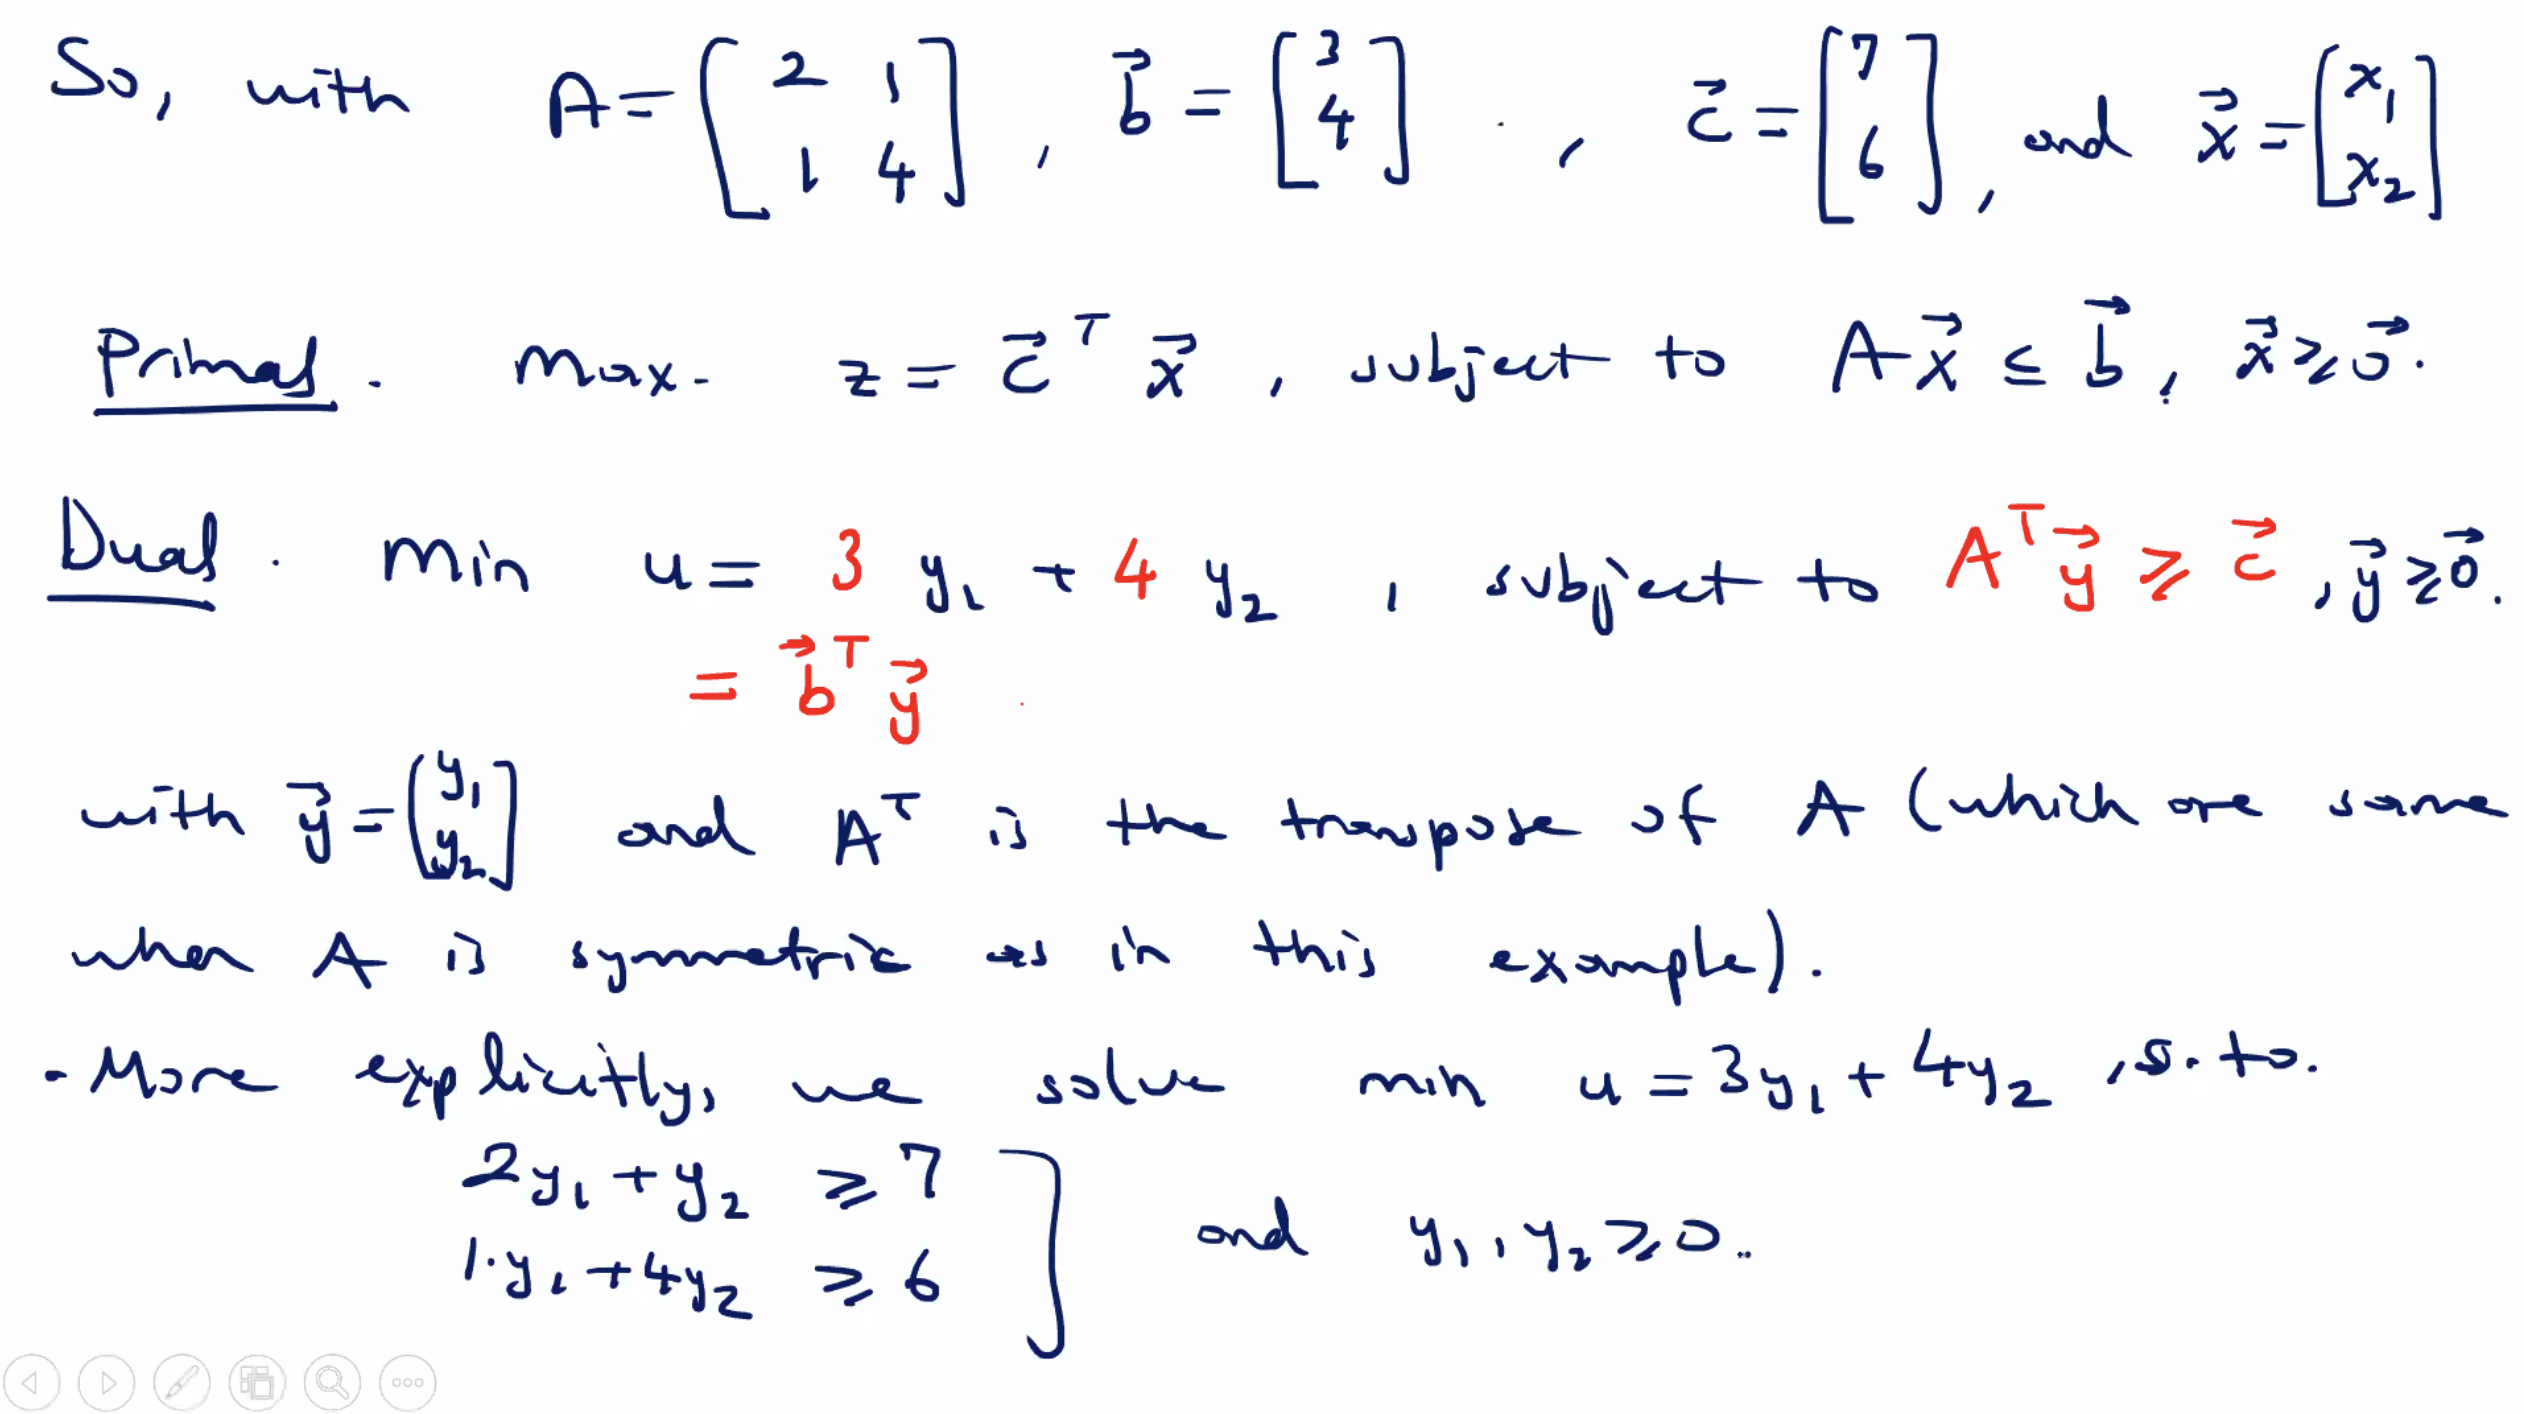 So, with A = [2 1; 1 4], b⃗ = [3; 4], c⃗ = [7; 6], and x⃗ = [x₁; x₂]
Primal. Max. z = c⃗ᵀ x⃗, subject to Ax⃗ ≤ b⃗, x⃗ ≥ 0⃗.
Dual. Min u = 3 y₁ + 4 y₂, subject to Aᵀy⃗ ≥ c⃗, y⃗ ≥ 0⃗.
= b⃗ᵀ y⃗
with y⃗ = [y₁; y₂] and Aᵀ is the transpose of A (which are same
when A is symmetric as in this example).
- More explicitly, we solve min u = 3y₁ + 4y₂, s. to.
2y₁ + y₂ ≥ 7
1·y₁ + 4y₂ ≥ 6 ] and y₁, y₂ ≥ 0.